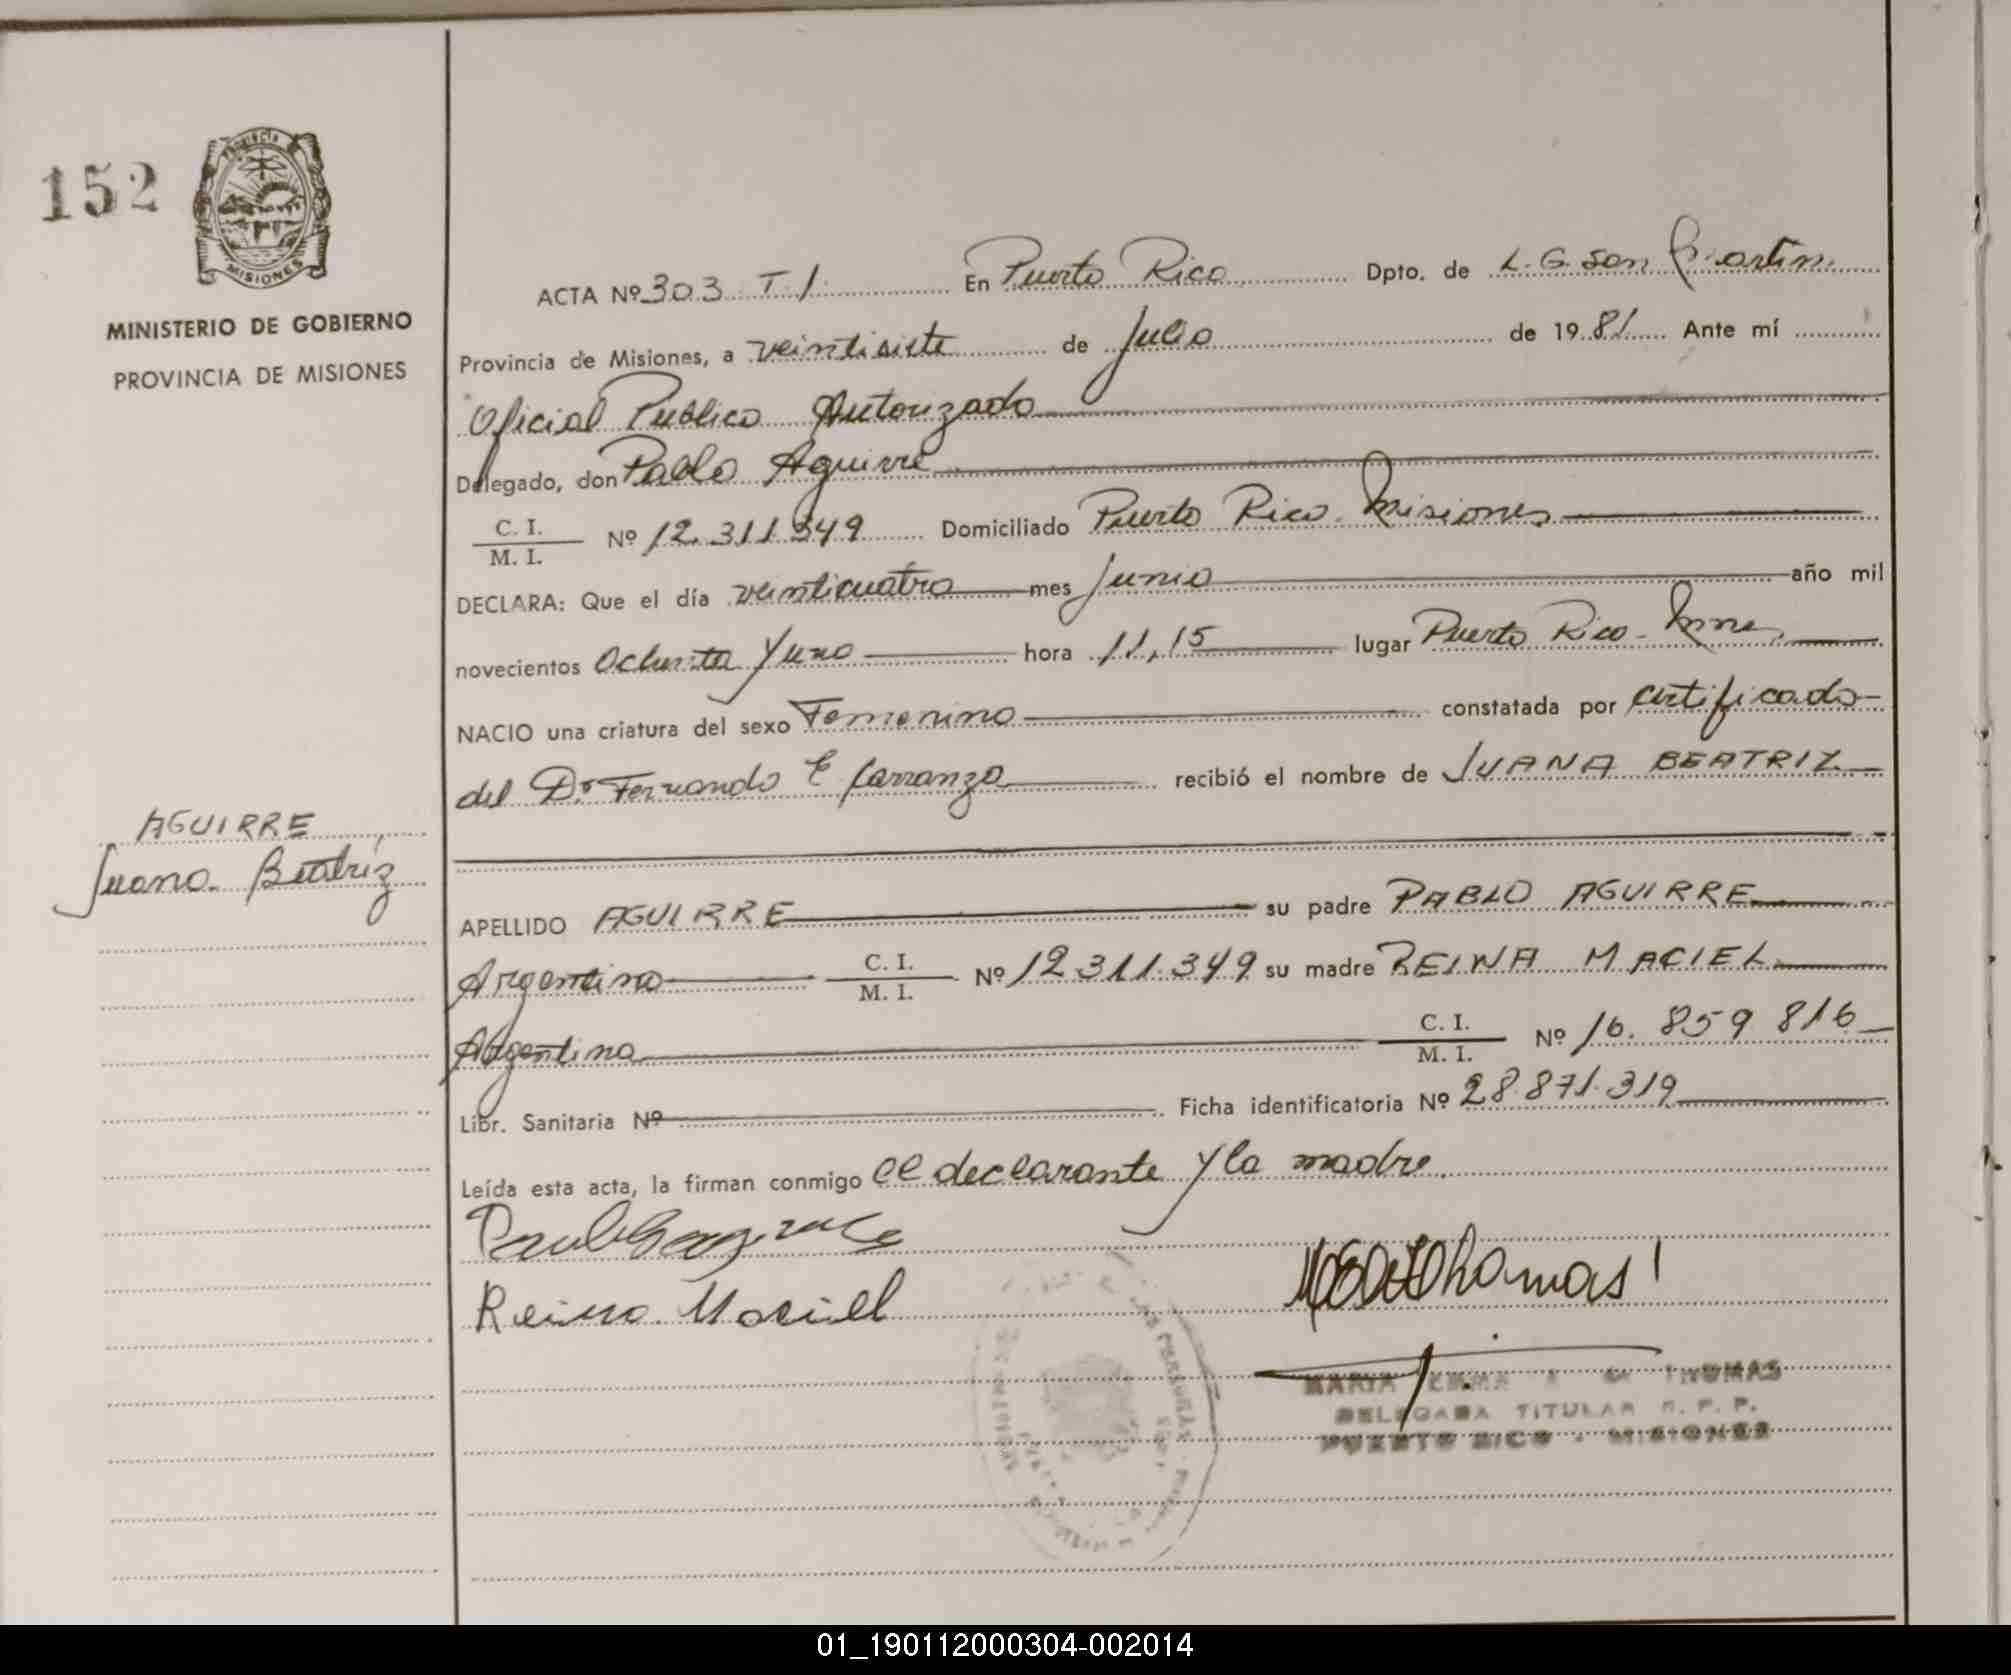 152
PROVINCIA
MISIONES
MINISTERIO DE GOBIERNO
PROVINCIA DE MISIONES
ACTA Nº 303 T. 1. En Puerto Rico Dpto. de L. G. San Martin
Provincia de Misiones, a veintisiete de Julio de 1981 Ante mí
Oficial Publico Autorizado
Delegado, don Pablo Aguirre
C. I.
M. I. Nº 12.311.349 Domiciliado Puerto Rico. Misiones
DECLARA: Que el día veinticuatro mes Junio año mil
novecientos Ochenta y uno hora 11,15 lugar Puerto Rico - Mnes.
NACIO una criatura del sexo Femenino constatada por certificado
del Dr Fernando E Carranza recibió el nombre de JUANA BEATRIZ
AGUIRRE
Juana Beatriz
APELLIDO AGUIRRE su padre PABLO AGUIRRE
Argentino C. I.
M. I. Nº 12.311.349 su madre REINA MACIEL
Argentina C. I.
M. I. Nº 16.859.816
Libr. Sanitaria Nº Ficha identificatoria Nº 28.871.319
Leída esta acta, la firman conmigo el declarante y la madre.
Reina Maciel
MARIA EMMA DE THOMAS
DELEGADA TITULAR R. P. P.
PUERTO RICO - MISIONES
01_190112000304-002014